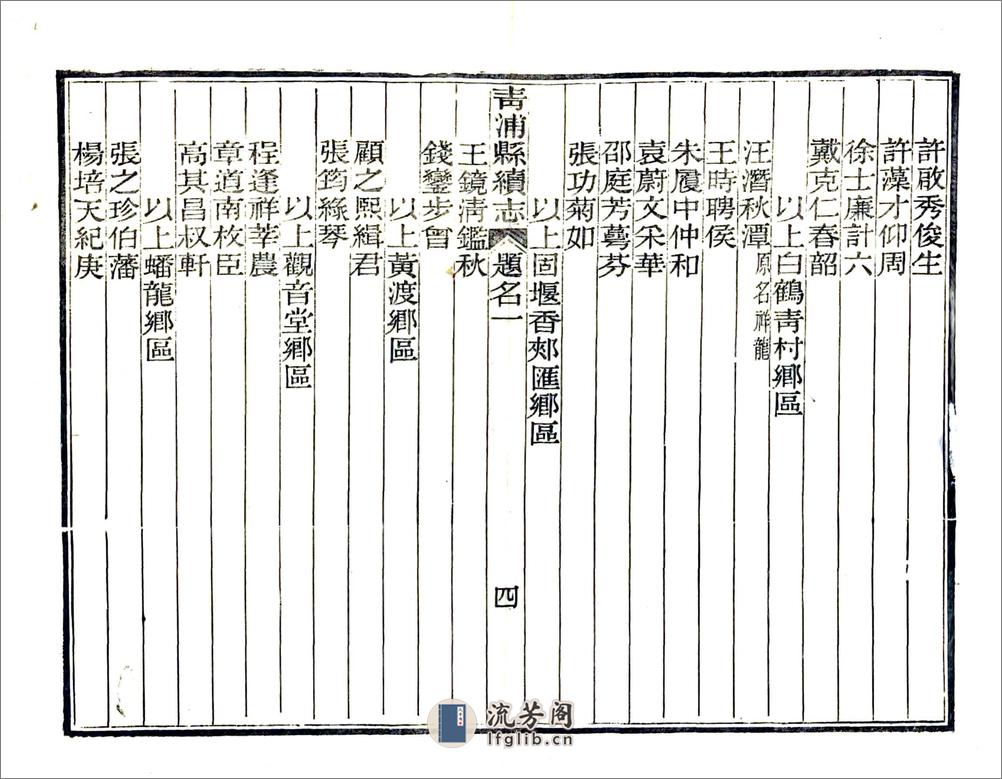 許啟秀俊生
許藻才仰周
徐士廉計六
戴克仁春韶
以上白鶴青村鄉區
汪潛秋潭原名祥龍
王時聘侯
朱履中仲和
袁蔚文采華
邵庭芳蕚芬
張功菊如
以上固堰香郟匯鄉區
青浦縣續志 題名一 四
王鏡清鑑秋
錢鑾步曾
以上黃渡鄉區
顧之熙緝君
張筠綠琴
以上觀音堂鄉區
程逢祥莘農
章道南枚臣
高其昌叔軒
以上蟠龍鄉區
張之珍伯藩
楊培天紀庚
流芳阁
lfglib.cn